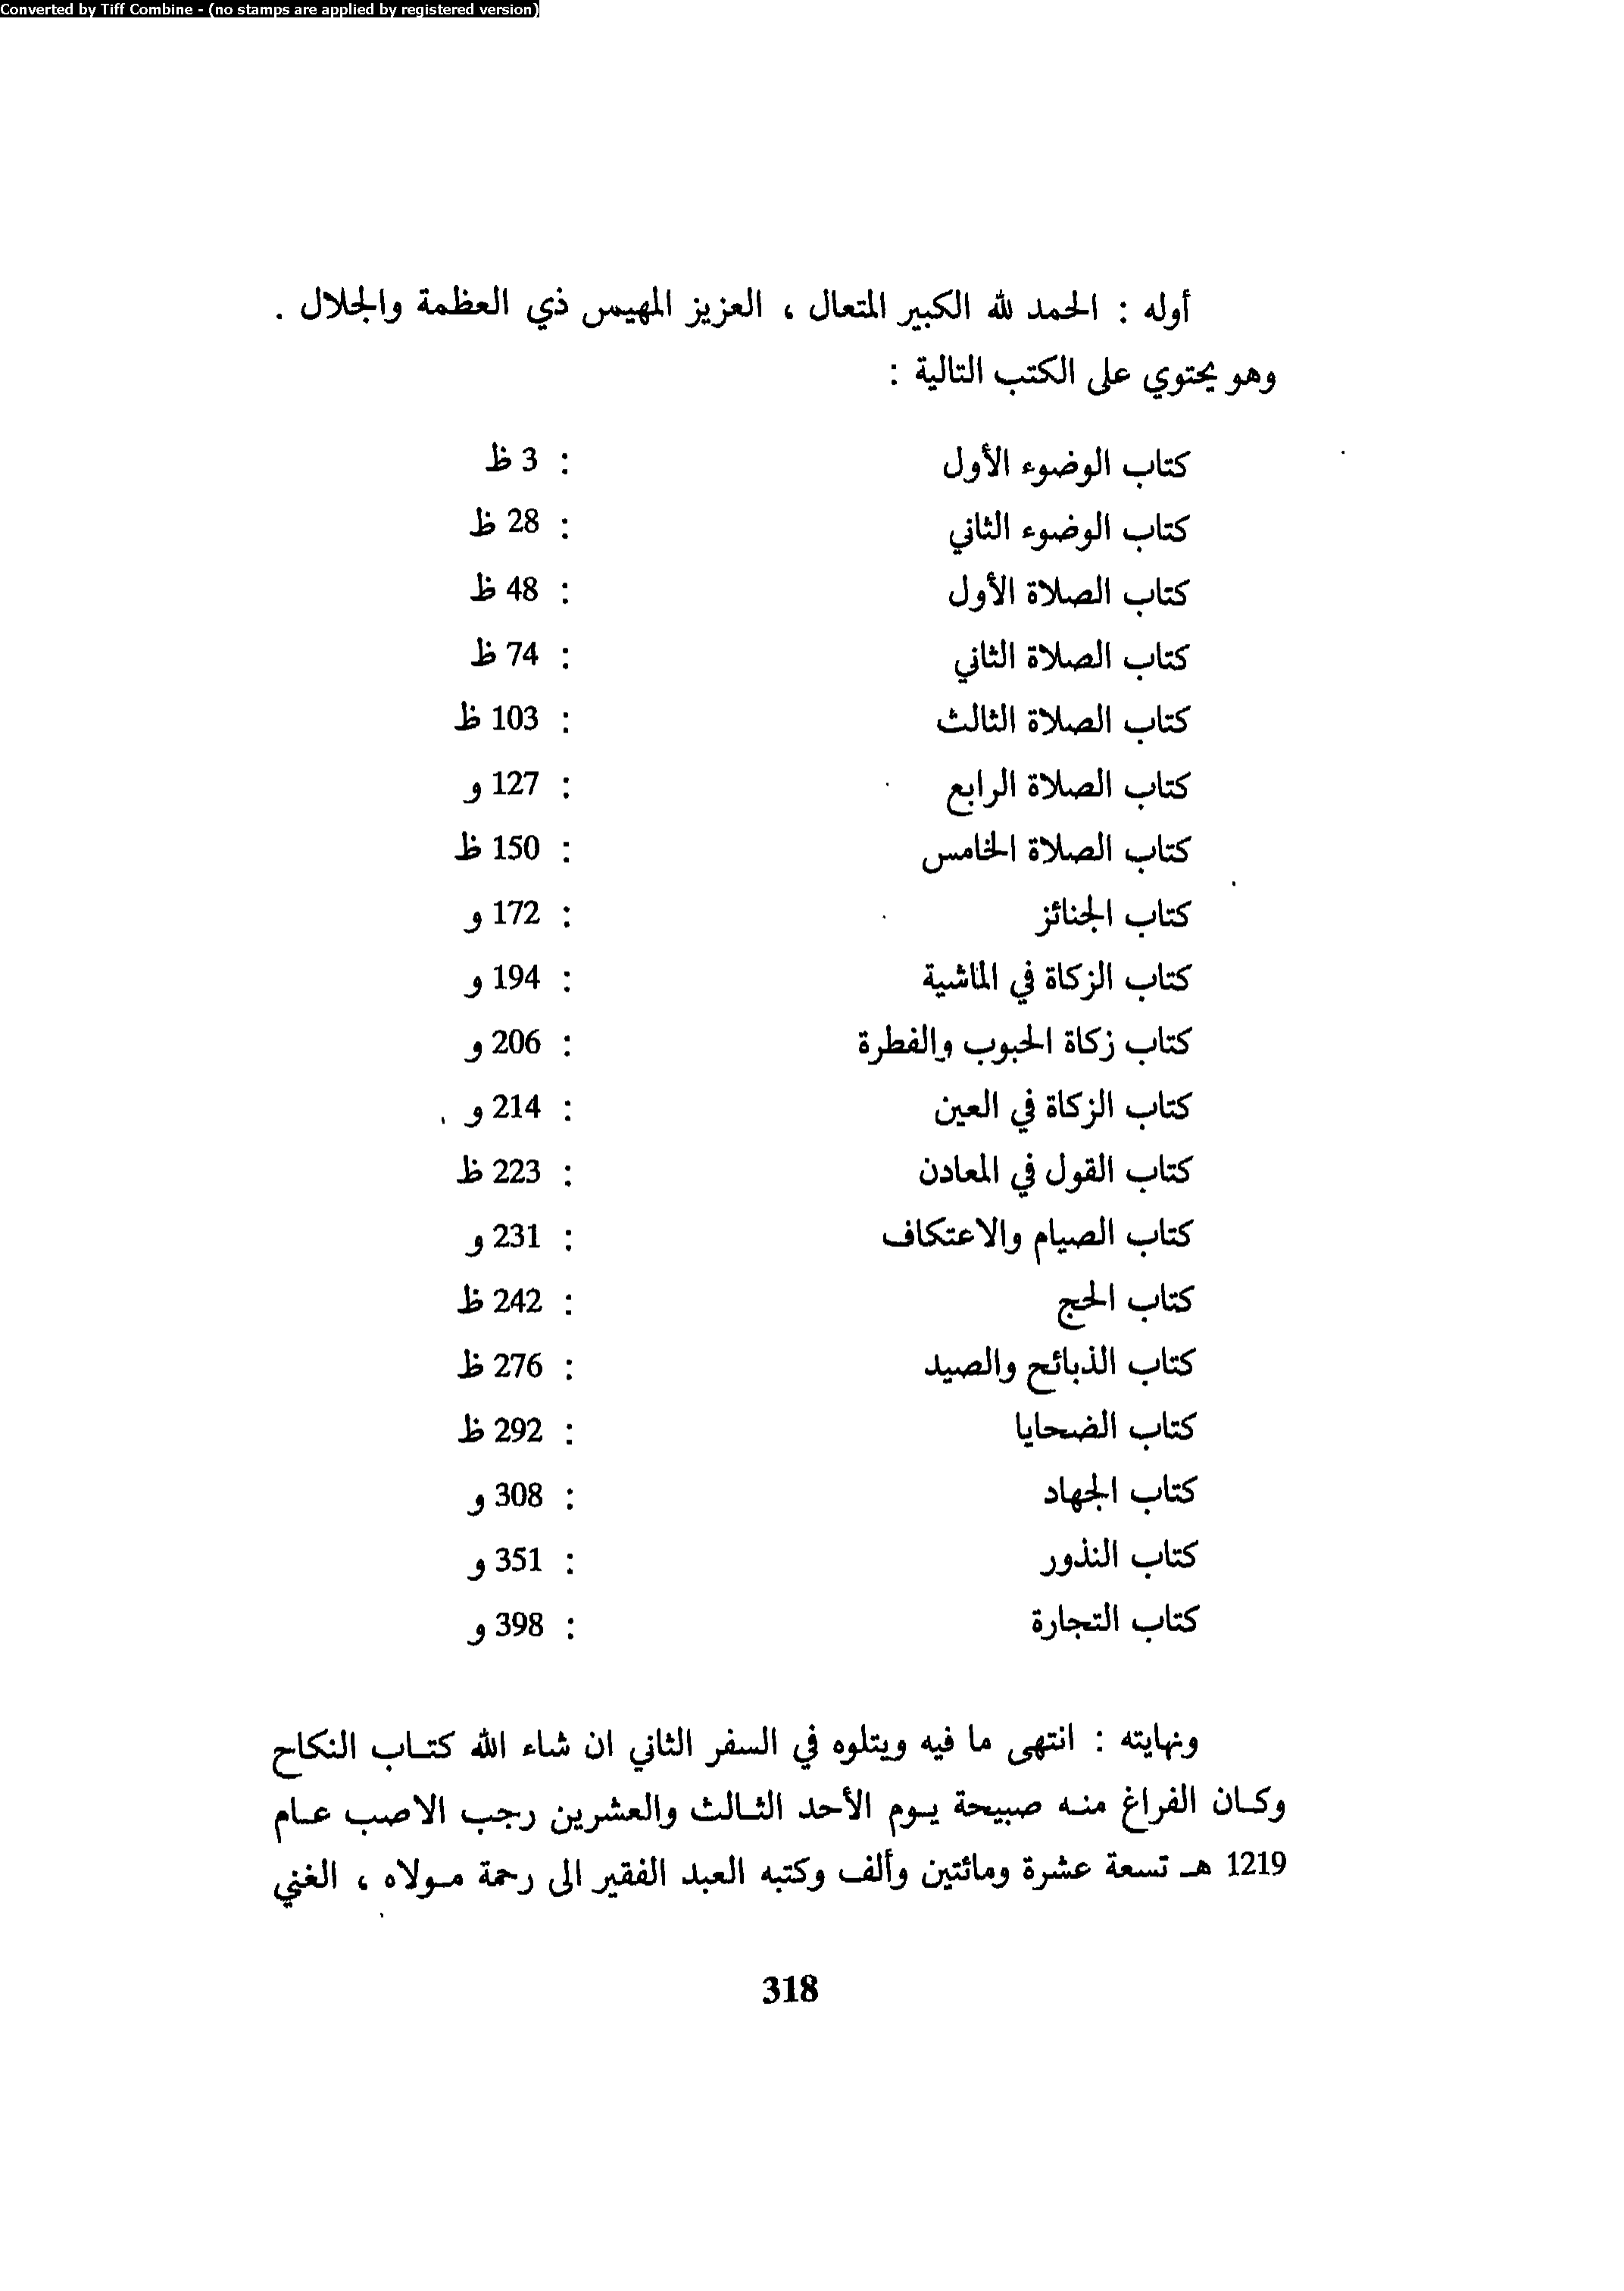 Converted by Tiff Combine - (no stamps are applied by registered version)
أوله : الحمد لله الكبير المتعال ، العزيز المهيمن ذي العظمة والجلال .
وهو يحتوي على الكتب التالية :
كتاب الوضوء الأول : 3 ظ
كتاب الوضوء الثاني : 28 ظ
كتاب الصلاة الأول : 48 ظ
كتاب الصلاة الثاني : 74 ظ
كتاب الصلاة الثالث : 103 ظ
كتاب الصلاة الرابع : 127 و
كتاب الصلاة الخامس : 150 ظ
كتاب الجنائز : 172 و
كتاب الزكاة في الماشية : 194 و
كتاب زكاة الحبوب والفطرة : 206 و
كتاب الزكاة في العين : 214 و
كتاب القول في المعادن : 223 ظ
كتاب الصيام والاعتكاف : 231 و
كتاب الحج : 242 ظ
كتاب الذبائح والصيد : 276 ظ
كتاب الضحايا : 292 ظ
كتاب الجهاد : 308 و
كتاب النذور : 351 و
كتاب التجارة : 398 و
ونهايته : انتهى ما فيه ويتلوه في السفر الثاني ان شاء الله كتاب النكاح
وكان الفراغ منه صبيحة يوم الأحد الثالث والعشرين رجب الاصب عام
1219 هـ تسعة عشرة ومائتين وألف وكتبه العبد الفقير الى رحمة مولاه ، الغني
318